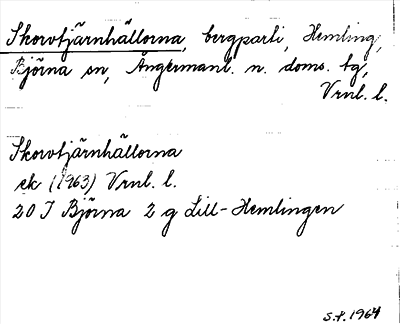 Skorvtjärnhällorna, bergparti, Hemling,
Björna sn, Ångermanl. n. doms. tg,
Vrnl. l.
Skorvtjärnhällorna
ek (1963) Vrnl. l.
20 I Björna 2 g Lill-Hemlingen
S.f. 1964